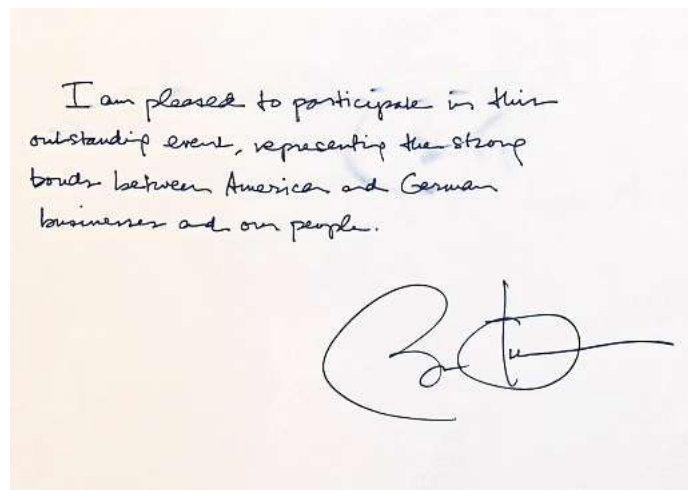 I am pleased to participate in this
outstanding event, representing the strong
bonds between American and German
businesses and our people.